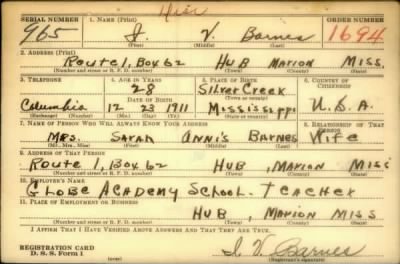 Hill
SERIAL NUMBER 1. NAME (Print) ORDER NUMBER
965 I. V. Barnes 1694
(First) (Middle) (Last)
2. ADDRESS (Print)
Route 1, Box 62 Hub Marion Miss.
(Number and street or R. F. D. number) (Town) (County) (State)
3. TELEPHONE 4. AGE IN YEARS 5. PLACE OF BIRTH 6. COUNTRY OF CITIZENSHIP
28 Silver Creek
DATE OF BIRTH (Town or county)
Columbia 12 23 1911 Mississippi U.S.A.
(Exchange) (Number) (Mo.) (Day) (Yr.) (State or country)
7. NAME OF PERSON WHO WILL ALWAYS KNOW YOUR ADDRESS 8. RELATIONSHIP OF THAT PERSON
Mrs. Sarah Annis Barnes Wife
(Mr., Mrs., Miss) (First) (Middle) (Last)
9. ADDRESS OF THAT PERSON
Route 1, Box 62 Hub, Marion Miss
(Number and street or R. F. D. number) (Town) (County) (State)
10. EMPLOYER'S NAME
Globe Academy School-Teacher
11. PLACE OF EMPLOYMENT OR BUSINESS
Hub, Marion Miss
(Number and street or R. F. D. number) (Town) (County) (State)
I AFFIRM THAT I HAVE VERIFIED ABOVE ANSWERS AND THAT THEY ARE TRUE.
REGISTRATION CARD
D. S. S. Form 1 I. V. Barnes
(Registrant's signature)